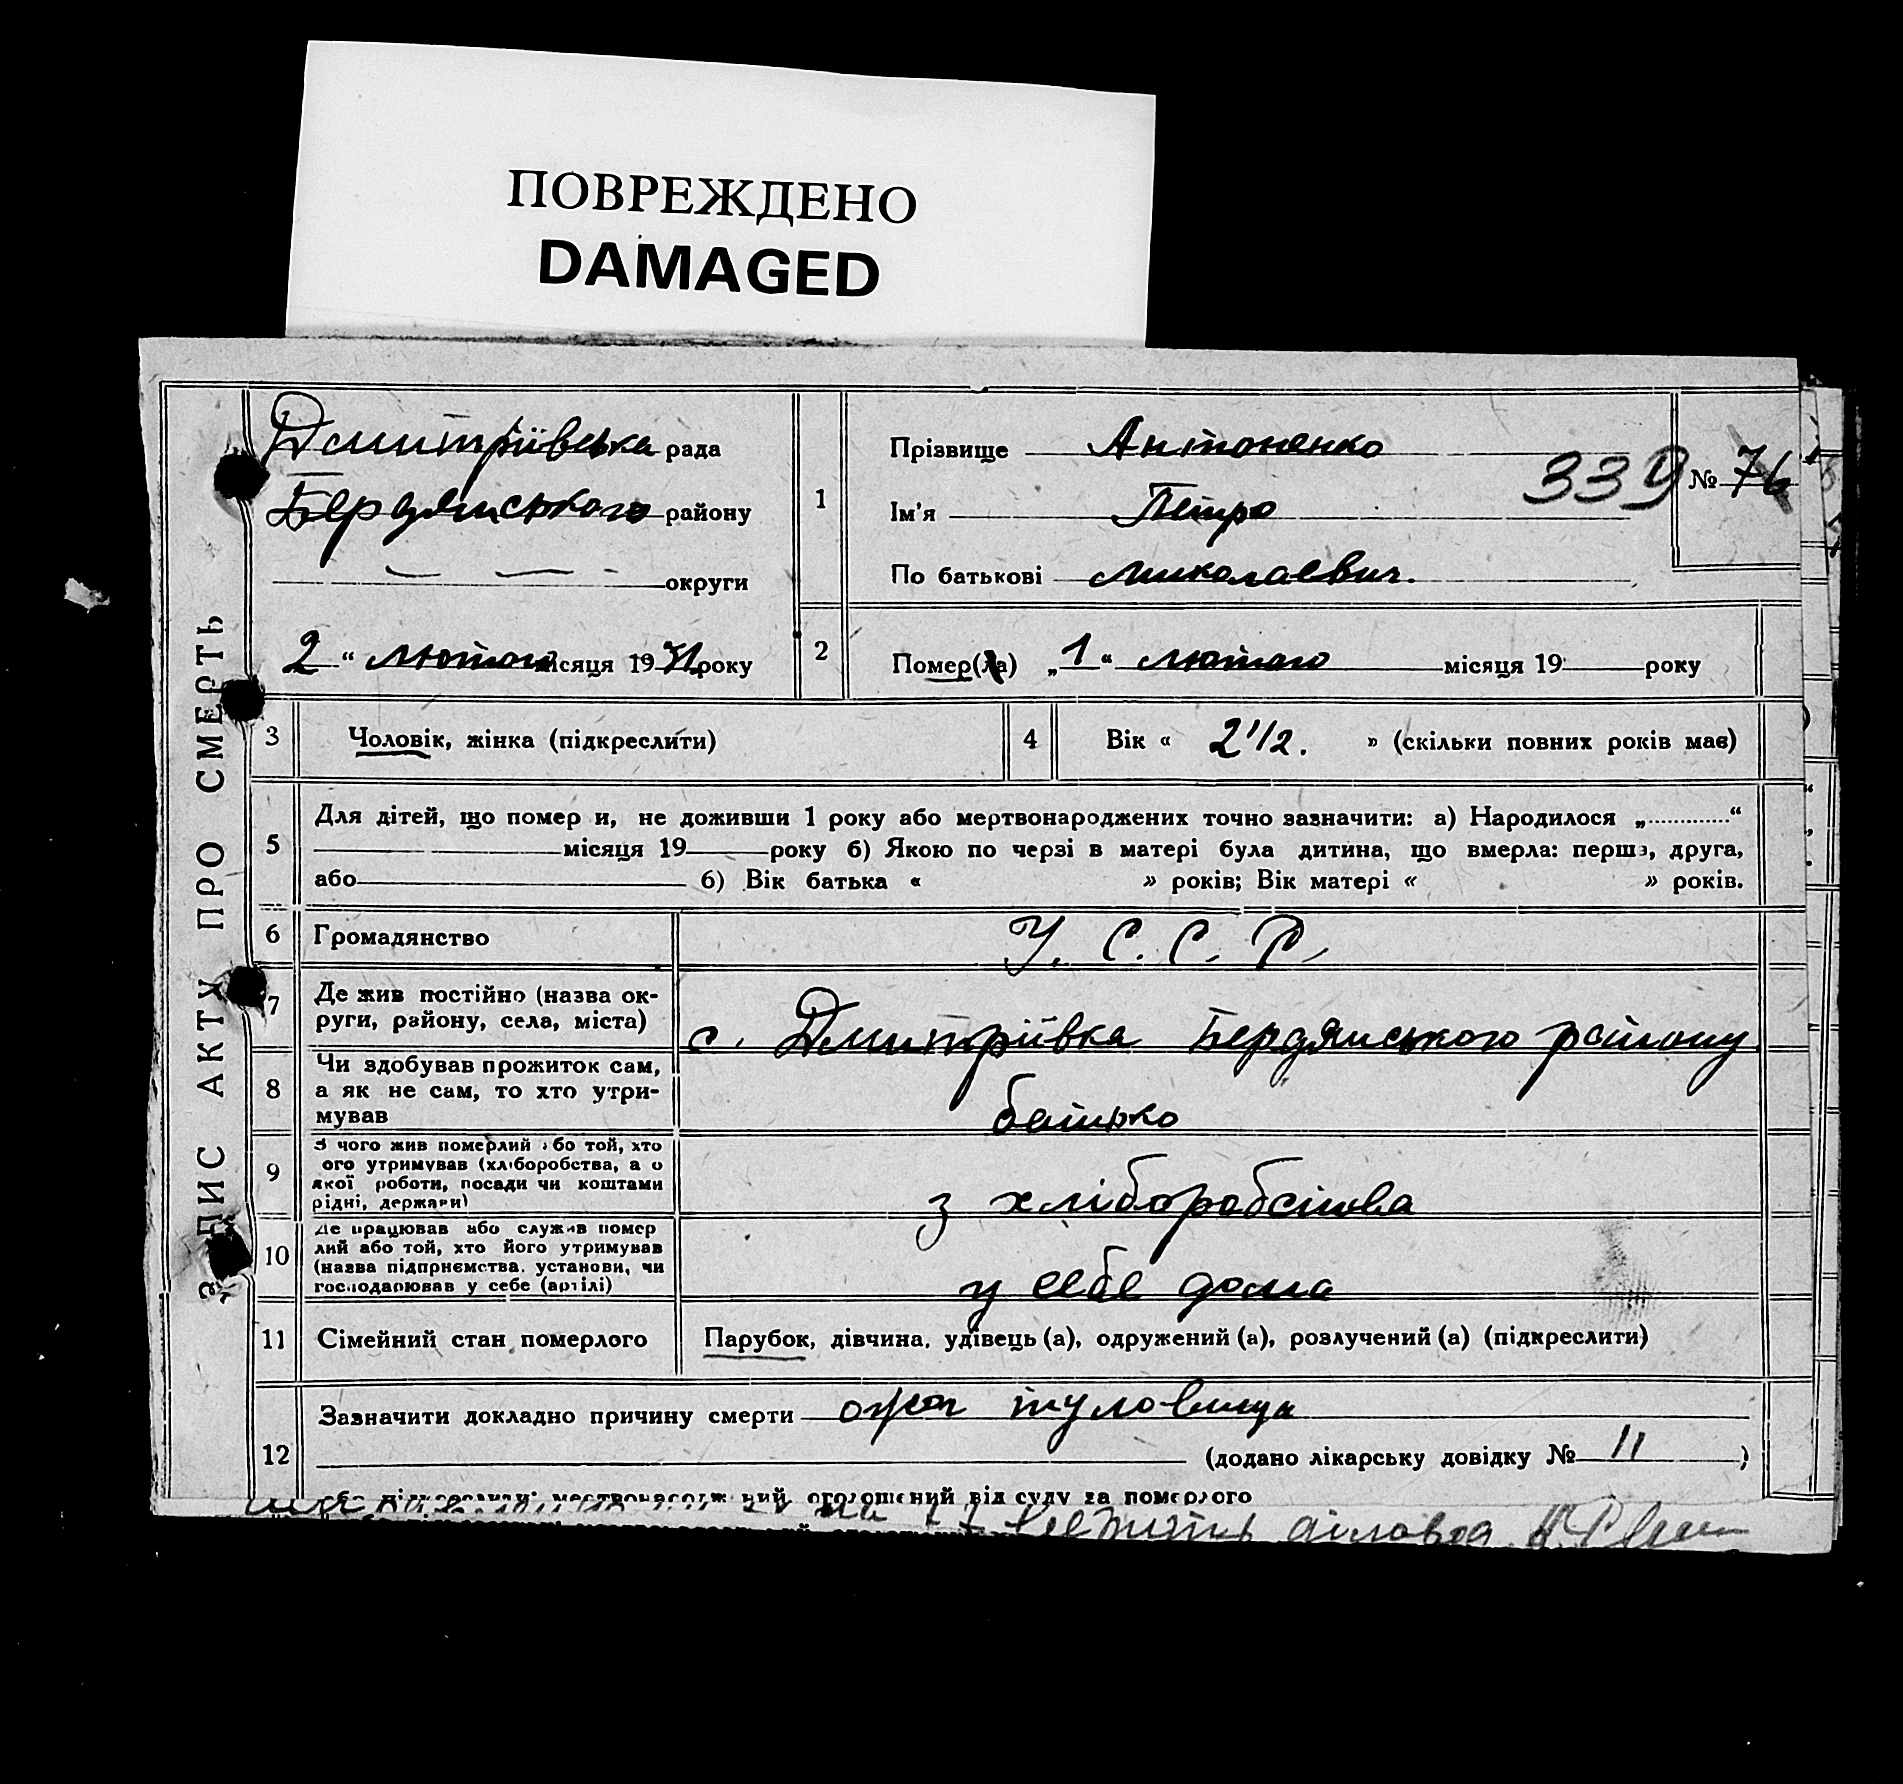 ПОВРЕЖДЕНО
DAMAGED
ЗАПИС АКТУ ПРО СМЕРТЬ
Дмитріївська рада
Бердянського району
округи
2 “ лютого місяця 1931 року
1
Прізвище Антоненко
Ім’я Петро
По батькові Миколаевич.
339 № 76
2
Помер(ла) „ 1 “ лютого місяця 19 року
3 Чоловік, жінка (підкреслити)
4 Вік « 2 1/2. » (скільки повних років має)
5
Для дітей, що помер и, не доживши 1 року або мертвонароджених точно зазначити: а) Народилося „ “
місяця 19 року б) Якою по черзі в матері була дитина, що вмерла: перша, друга,
або б) Вік батька « » років; Вік матері « » років.
6 Громадянство У. С. С. Р.
7 Де жив постійно (назва ок-
руги, району, села, міста)
с. Дмитріївка Бердянського району
8 Чи здобував прожиток сам,
а як не сам, то хто утри-
мував
батько
9 З чого жив померлий або той, хто
ого утримував (хліборобства, а о
якої роботи, посади чи коштами
рідні, держави)
з хліборобства
10 Де працював або служив помер
лий або той, хто його утримував
(назва підприємства, установи, чи
господарював у себе (артілі)
у себе дома
11 Сімейний стан померлого Парубок, дівчина, удівець (а), одружений (а), розлучений (а) (підкреслити)
12 Зазначити докладно причину смерти ожог туловища
(додано лікарську довідку № 11 )
або підкреслити: мертвонароджений, оголошений від суду за померлого